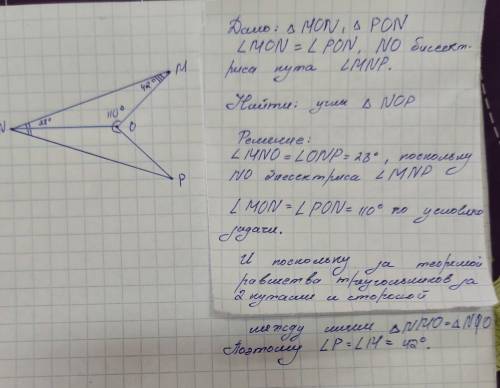 Дано: △ MON, △ PON
∠MON = ∠PON, NO биссект-
риса кута ∠MNP.
Найти: углы △ NOP
Решение:
∠MNO = ∠ONP = 28°, поскольку
NO биссектриса ∠MNP
∠MON = ∠PON = 110° по условию
задачи.
И поскольку за теоремой
равенства треугольников за
2 кутами и стороной
между ними △NMO = △NPO
Поэтому ∠P = ∠M = 42°.
M
42°
110°
N
28°
O
P